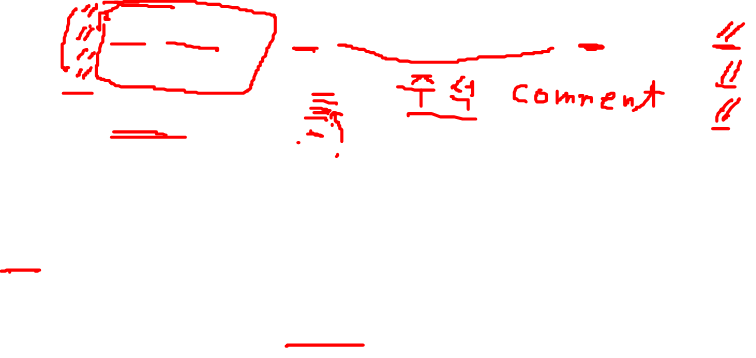 주석 comment